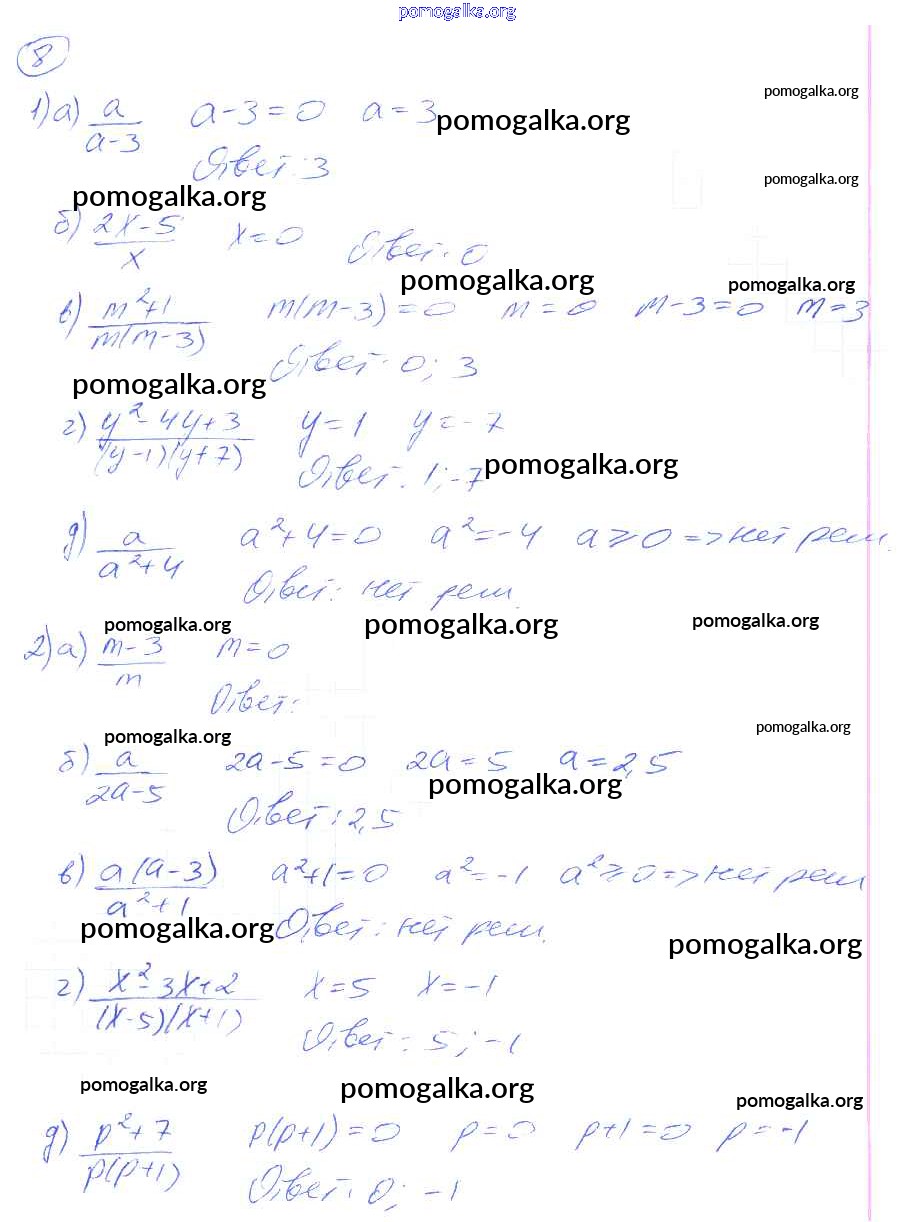 pomogalka.org
8
pomogalka.org
1) а) a/(a-3) a-3=0 a=3 pomogalka.org
Ответ: 3
pomogalka.org
pomogalka.org
б) (2x-5)/x x=0 Ответ: 0
pomogalka.org pomogalka.org
в) (m²+1)/(m(m-3)) m(m-3)=0 m=0 m-3=0 m=3
Ответ: 0; 3
pomogalka.org
г) (y²-4y+3)/((y-1)(y+7)) y=1 y=-7
Ответ: 1; -7 pomogalka.org
д) a/(a²+4) a²+4=0 a²=-4 a⩾0 => нет реш.
Ответ: нет реш.
pomogalka.org pomogalka.org pomogalka.org
2) а) (m-3)/m m=0
Ответ:
pomogalka.org pomogalka.org
б) a/(2a-5) 2a-5=0 2a=5 a=2,5
pomogalka.org
Ответ: 2,5
в) a(a-3)/(a²+1) a²+1=0 a²=-1 a²⩾0 => нет реш
pomogalka.org Ответ: нет реш.
pomogalka.org
г) (x²-3x+2)/((x-5)(x+1)) x=5 x=-1
Ответ: 5; -1
pomogalka.org pomogalka.org pomogalka.org
д) (p²+7)/(p(p+1)) p(p+1)=0 p=0 p+1=0 p=-1
Ответ: 0; -1